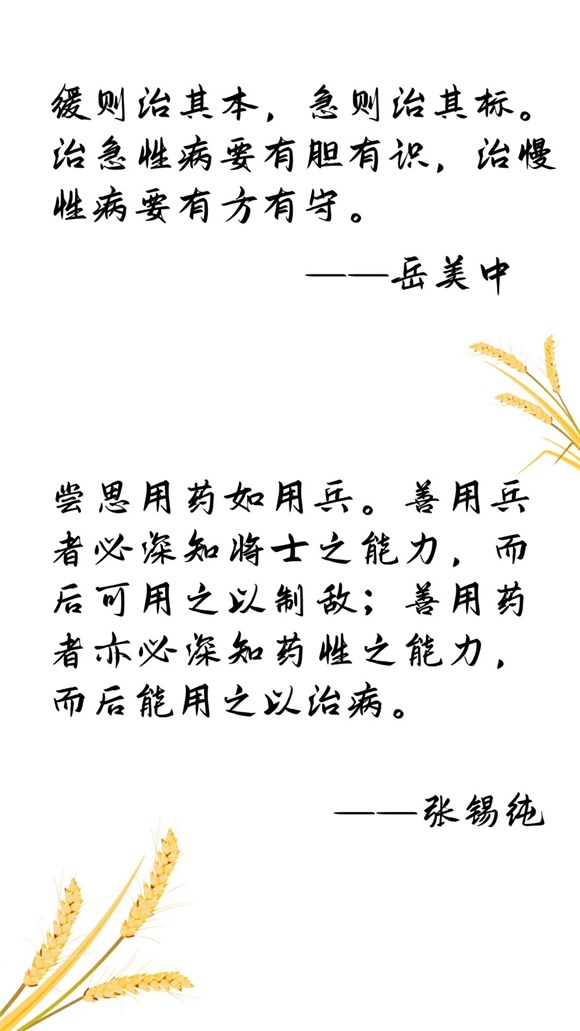 缓则治其本，急则治其标。
治急性病要有胆有识，治慢
性病要有方有守。
——岳美中
尝思用药如用兵。善用兵
者必深知将士之能力，而
后可用之以制敌；善用药
者亦必深知药性之能力，
而后能用之以治病。
——张锡纯